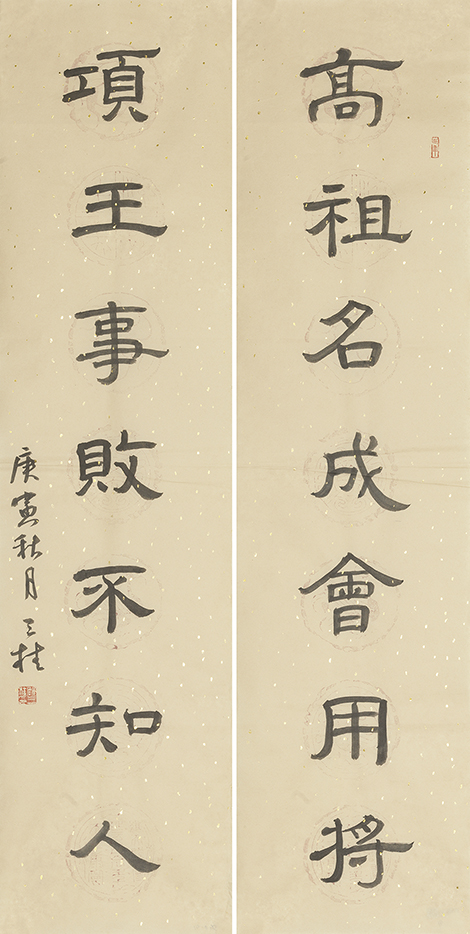 高祖名成會用將
項王事敗不知人
庚寅秋月